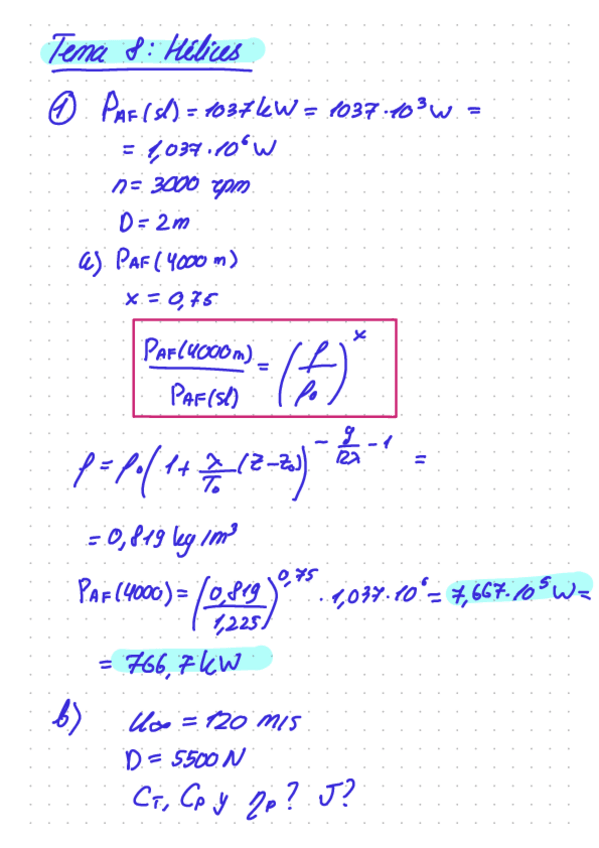 Tema 8: Hélices
① P_AF(sl) = 1037 kW = 1037·10³ W =
= 1,037·10⁶ W
n = 3000 rpm
D = 2m
a) P_AF(4000 m)
x = 0,75
P_AF(4000m) / P_AF(sl) = (ρ/ρ₀)^x
ρ = ρ₀(1 + λ/T₀ (z-z₀))^(-g/(Rλ) - 1) =
= 0,819 kg/m³
P_AF(4000) = (0,819/1,225)^0,75 · 1,037·10⁶ = 7,667·10⁵ W =
= 766,7 kW
b) u∞ = 120 m/s
D = 5500 N
C_T, C_P y η_P? J?